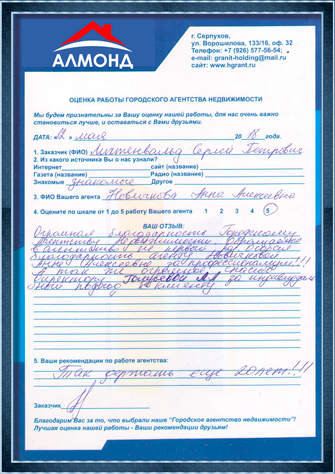 АЛМОНД
г. Серпухов,
ул. Ворошилова, 133/16, оф. 32
Телефон: +7 (926) 577-56-54;
e-mail: granit-holding@mail.ru
сайт: www.hgrant.ru
ОЦЕНКА РАБОТЫ ГОРОДСКОГО АГЕНТСТВА НЕДВИЖИМОСТИ
Мы будем признательны за Вашу оценку нашей работы, для нас очень важно
становиться лучше, и оставаться с Вами друзьями.
ДАТА: 12 мая 20 18 года.
1. Заказчик (ФИО) Лихтенвальд Сергей Петрович
2. Из какого источника Вы о нас узнали?
Интернет сайт (название)
Газета (название) Радио (название)
Знакомые знакомые Другое
3. ФИО Вашего агента Новичкова Анна Алексеевна
4. Оцените по шкале от 1 до 5 работу Вашего агента 1 2 3 4 5
ВАШ ОТЗЫВ:
Огромная благодарность Городскому
Агентству Недвижимости. Обращаемся
не первый раз. Особая
благодарность агенту Новичковой
Анне Алексеевне за профессионализм!!!
А так же огромное спасибо
директору за индивидуаль
ный подход к клиенту
5. Ваши рекомендации по работе агентства:
Так держать еще 20 лет!!!
Заказчик
Благодарим Вас за то, что выбрали наше "Городское агентство недвижимости"!
Лучшая оценка нашей работы - Ваши рекомендации друзьям!